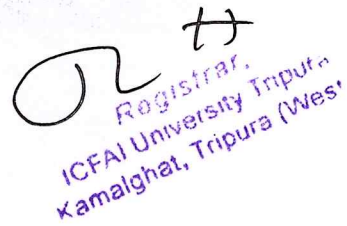 Registrar,
ICFAI University Tripura
Kamalghat, Tripura (West